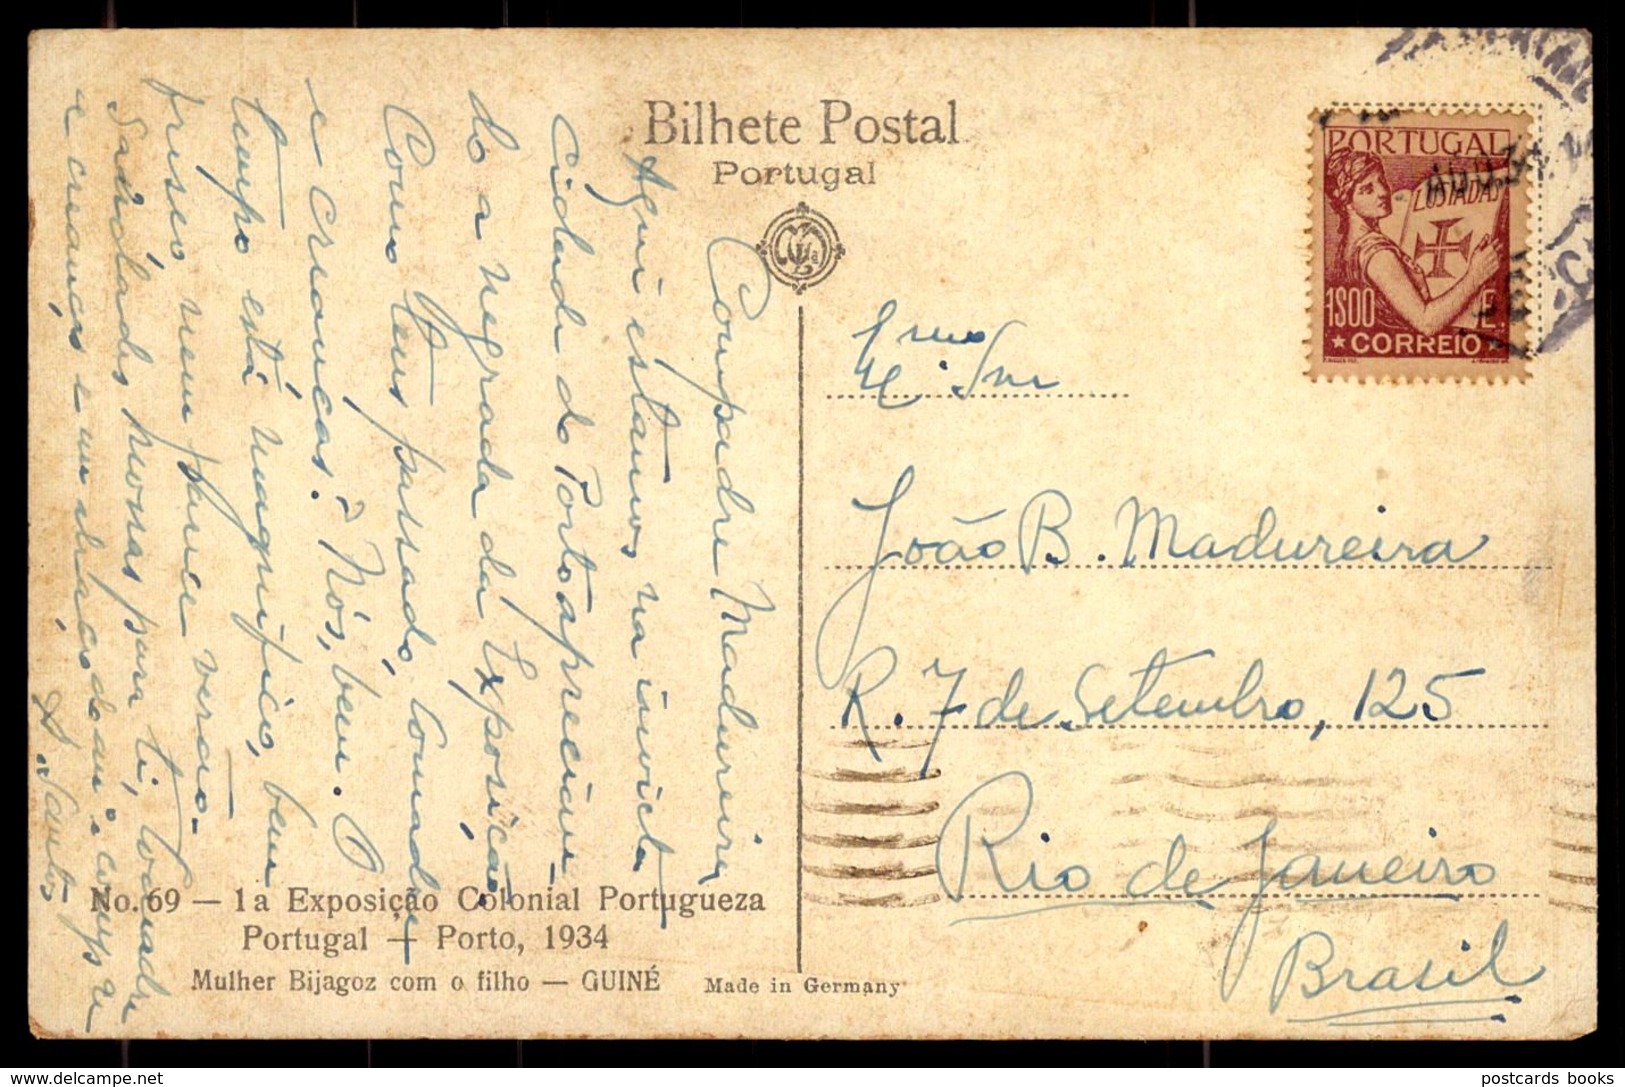 Bilhete Postal
Portugal
PORTUGAL
LUSIADAS
1$00 E.
CORREIO
Compadre Madureira
Aqui estamos na invicta
cidade do Porto apreciando
a negrada da Exposição.
Como tens passado, Comadre
e crianças? Nós, bem. O
tempo está magnífico, bem
fresco nem parece verão.
Saudades nossas para ti, Comadre
e crianças e um abraço do am.º e compe
A. Santos
Exmo
Snr
João B. Madureira
R. 7 de Setembro, 125
Rio de Janeiro
Brasil
No. 69 — 1a Exposição Colonial Portugueza
Portugal — Porto, 1934
Mulher Bijagoz com o filho — GUINÉ
Made in Germany
www.delcampe.net
postcards books